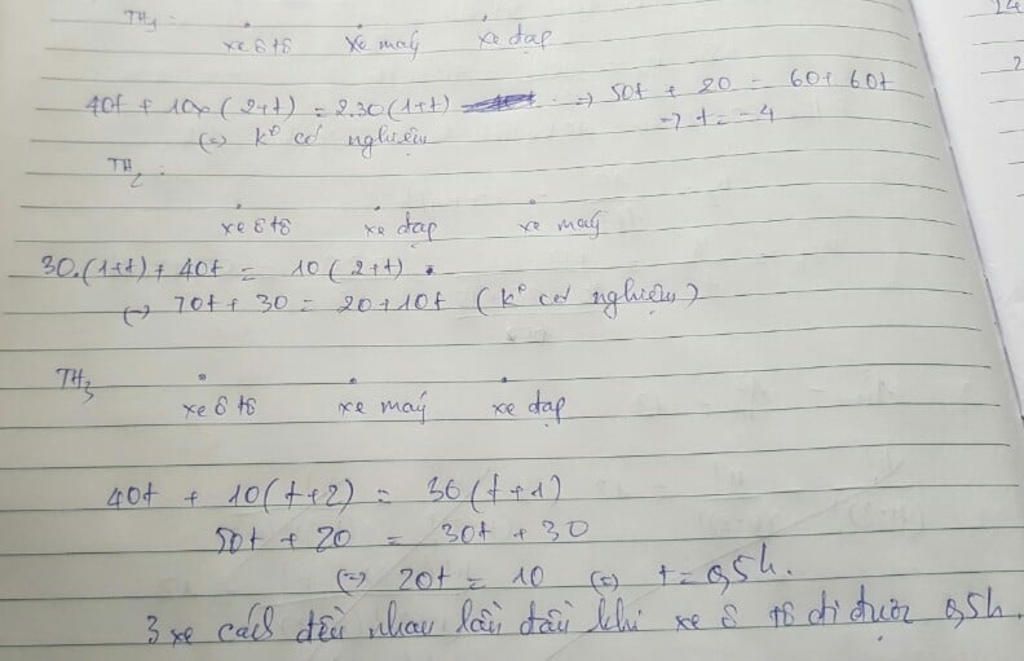 TH1:
xe ôtô xe máy xe đạp
40t + 10 (2+t) = 2.30(1+t) => 50t + 20 = 60+60t
(=) k° có nghiệm -> t = -4
TH2:
xe ôtô xe đạp xe máy
30.(1+t) + 40t = 10(2+t).
(=) 70t + 30 = 20+10t (k° có nghiệm)
TH3
xe ô tô xe máy xe đạp
40t + 10(t+2) = 30(t+1)
50t + 20 = 30t + 30
(=) 20t = 10 (=) t = 0,5h.
3 xe cách đều nhau lần đầu khi xe ô tô đi được 0,5h.
24
2